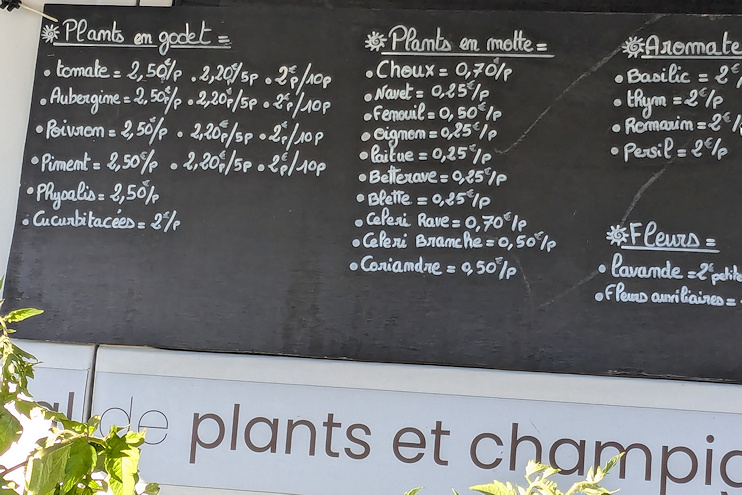 Plants en godet =
• tomate = 2,50€/p • 2,20€/5p • 2€/10p
• Aubergine = 2,50€/p • 2,20€/5p • 2€/10p
• Poivron = 2,50€/p • 2,20€/5p • 2€/10p
• Piment = 2,50€/p • 2,20€/5p • 2€/10p
• Physalis = 2,50€/p
• Cucurbitacées = 2€/p
Plants en motte =
• Choux = 0,70€/p
• Navet = 0,25€/p
• Fenouil = 0,50€/p
• Oignon = 0,25€/p
• Laitue = 0,25€/p
• Betterave = 0,25€/p
• Blette = 0,25€/p
• Celeri Rave = 0,70€/p
• Celeri Branche = 0,50€/p
• Coriandre = 0,50€/p
Aromate
• Basilic = 2€/
• thym = 2€/p
• Romarin = 2€/
• Persil = 2€/p
Fleurs =
• lavande = 2€ petite
• Fleurs auxiliaires =
al de plants et champig